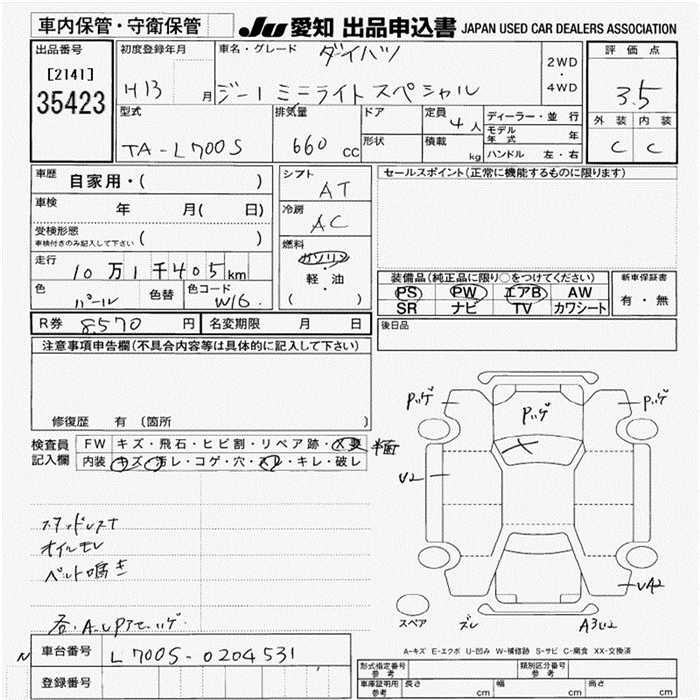 車内保管・守衛保管
JU 愛知 出品申込書 JAPAN USED CAR DEALERS ASSOCIATION
出品番号
[2141]
35423
初度登録年月
H13 月
車名・グレード ダイハツ
ジーノ ミニライトスペシャル
2WD
・
4WD
評価点
3.5
外装 内装
C C
型式
TA-L700S
排気量
660 cc
ドア
形状
定員
4人
積載
kg
ディーラー・並行
モデル年式 年
ハンドル 左・右
車歴 自家用・( )
車検 年 月( 日)
受検形態
車検付きのみ記入して下さい ( )
走行 10万1千405km
色 パール 色替 色コード W16
シフト
AT
冷房
AC
燃料
ガソリン
・
軽・油
( )
セールスポイント(正常に機能するものに限ります)
装備品(純正品に限り○をつけてください)
PS PW エアB AW
SR ナビ TV カワシート
新車保証書
有・無
R券 8570 円 名変期限 月 日
後日品
注意事項申告欄(不具合内容等は具体的に記入して下さい)
修復歴 有 〔箇所 〕
検査員
記入欄
FW キズ・飛石・ヒビ割・リペア跡・X要
内装 キズ・汚レ・コゲ・穴・スレ・キレ・破レ
スタッドレス
オイルモレ
ベルト鳴き
Pハゲ
Pハゲ
Pハゲ
U2
UA2
A3U2
ズレ
スペア
A-キズ E-エクボ U-凹み W-補修跡 S-サビ C-腐食 XX-交換済
車台番号 L700S-0204531
登録番号
型式指定番号
参考
類別区分番号
参考
車庫証明用
参考
長さ cm 幅 cm 高さ cm